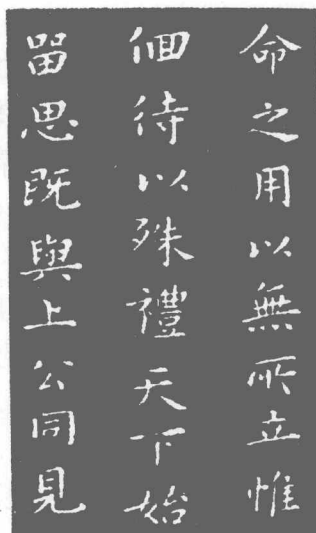 命之用以無所立惟
佪待以殊禮天下始
畱思既與上公同見